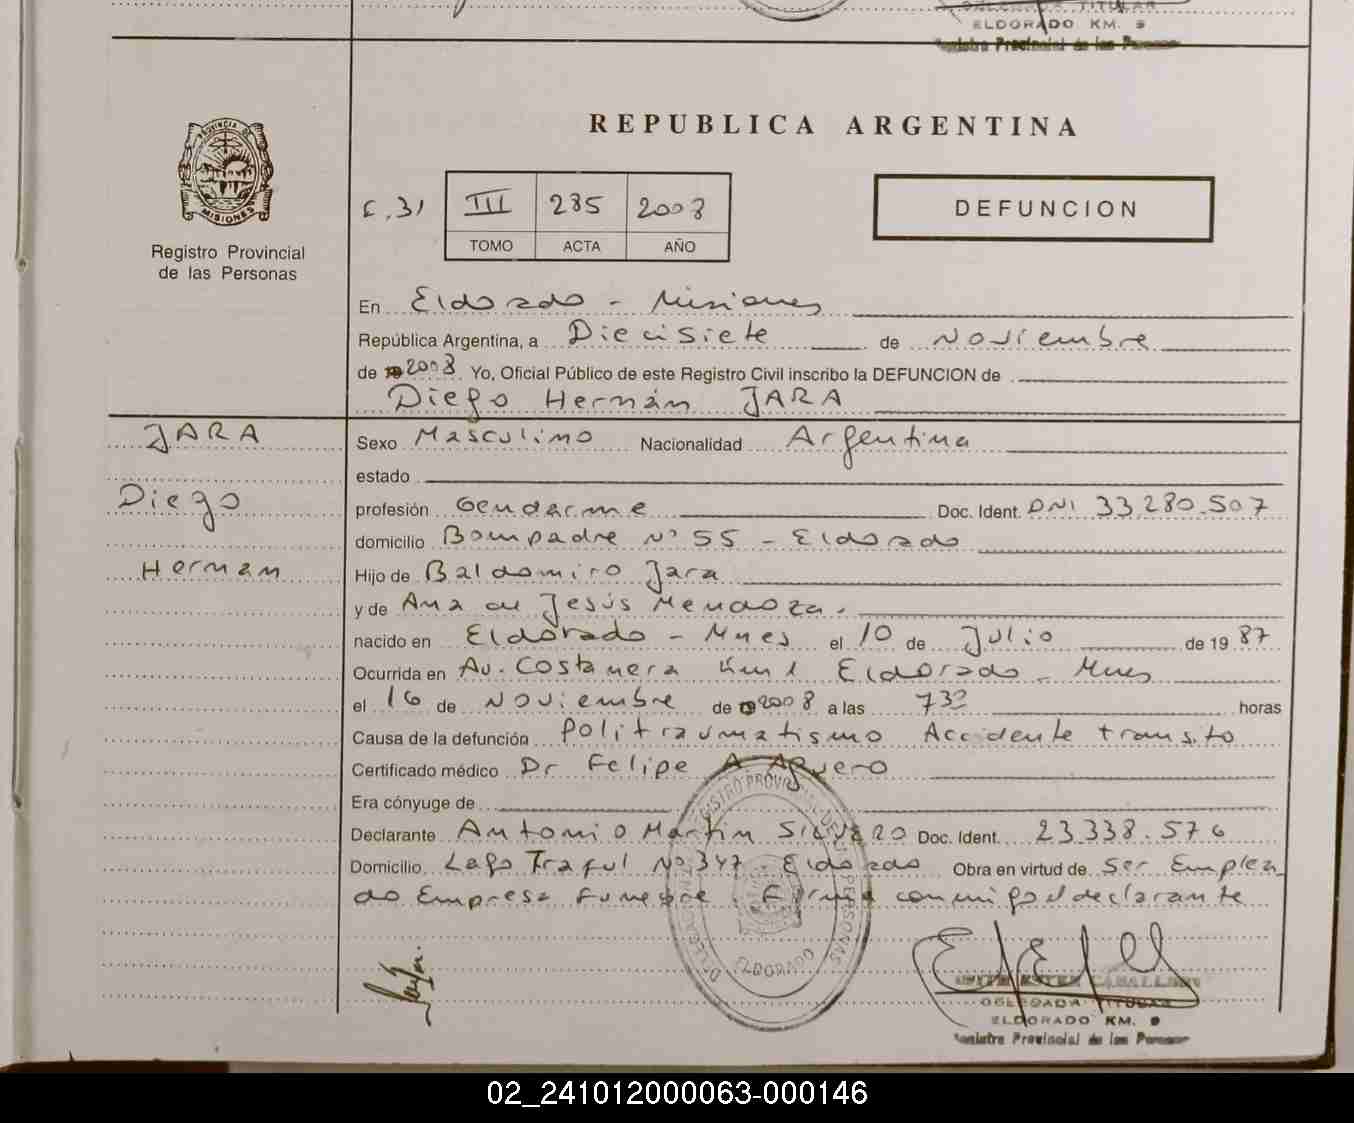 ELDORADO KM. 9
Registro Provincial de las Personas
PROVINCIA DE
MISIONES
Registro Provincial
de las Personas
REPUBLICA ARGENTINA
III 285 2008
TOMO ACTA AÑO
DEFUNCION
En Eldorado - Misiones
República Argentina, a Diecisiete de Noviembre
de 2008 Yo, Oficial Público de este Registro Civil inscribo la DEFUNCION de
Diego Hernán JARA
JARA
Diego
Hernan
Sexo Masculino Nacionalidad Argentina
estado
profesión Gendarme Doc. Ident. DNI 33.280.507
domicilio Bompadre Nº 55 - Eldorado
Hijo de Baldomiro Jara
y de Ana de Jesús Mendoza.
nacido en Eldorado - Mnes el 10 de Julio de 19 87
Ocurrida en Av. Costanera Km 1 Eldorado - Mnes
el 16 de Noviembre de 2008 a las 730 horas
Causa de la defunción Politraumatismo Accidente transito
Certificado médico Dr Felipe A Aguero
Era cónyuge de
Declarante Antonio Martin SILVERO Doc. Ident. 23.338.576
Domicilio Lago Traful Nº 347 Eldorado Obra en virtud de Ser Emplea
do Empresa Funebre. Firma conmigo el declarante
ELDORADO
DELEGADA TITULAR
ELDORADO KM. 9
Registro Provincial de las Personas
02_241012000063-000146